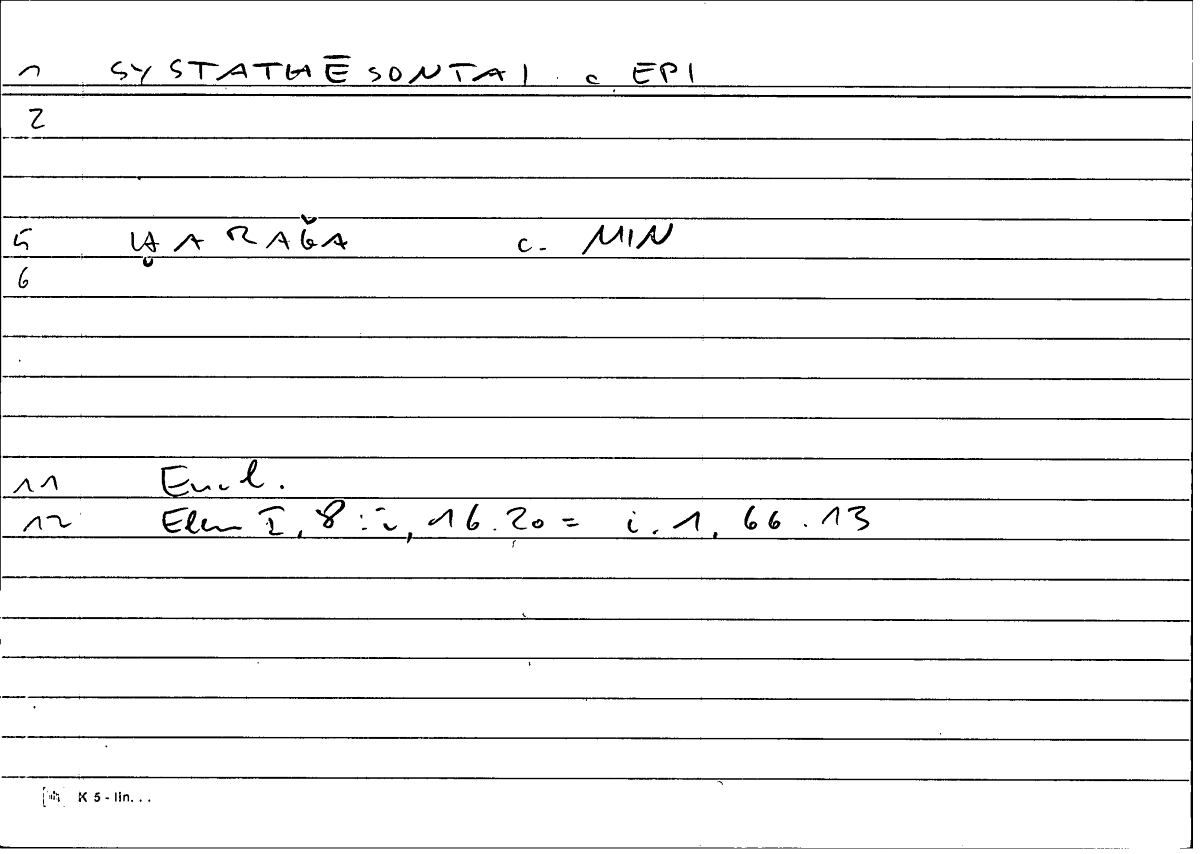 1 SYSTATHĒSONTAI c. EPI
2
5 ḪARAǦA c. MIN
6
11 Eucl.
12 Elem I, 8 : i, 16.20 = i. 1, 66.13
K 5 - lin. . .